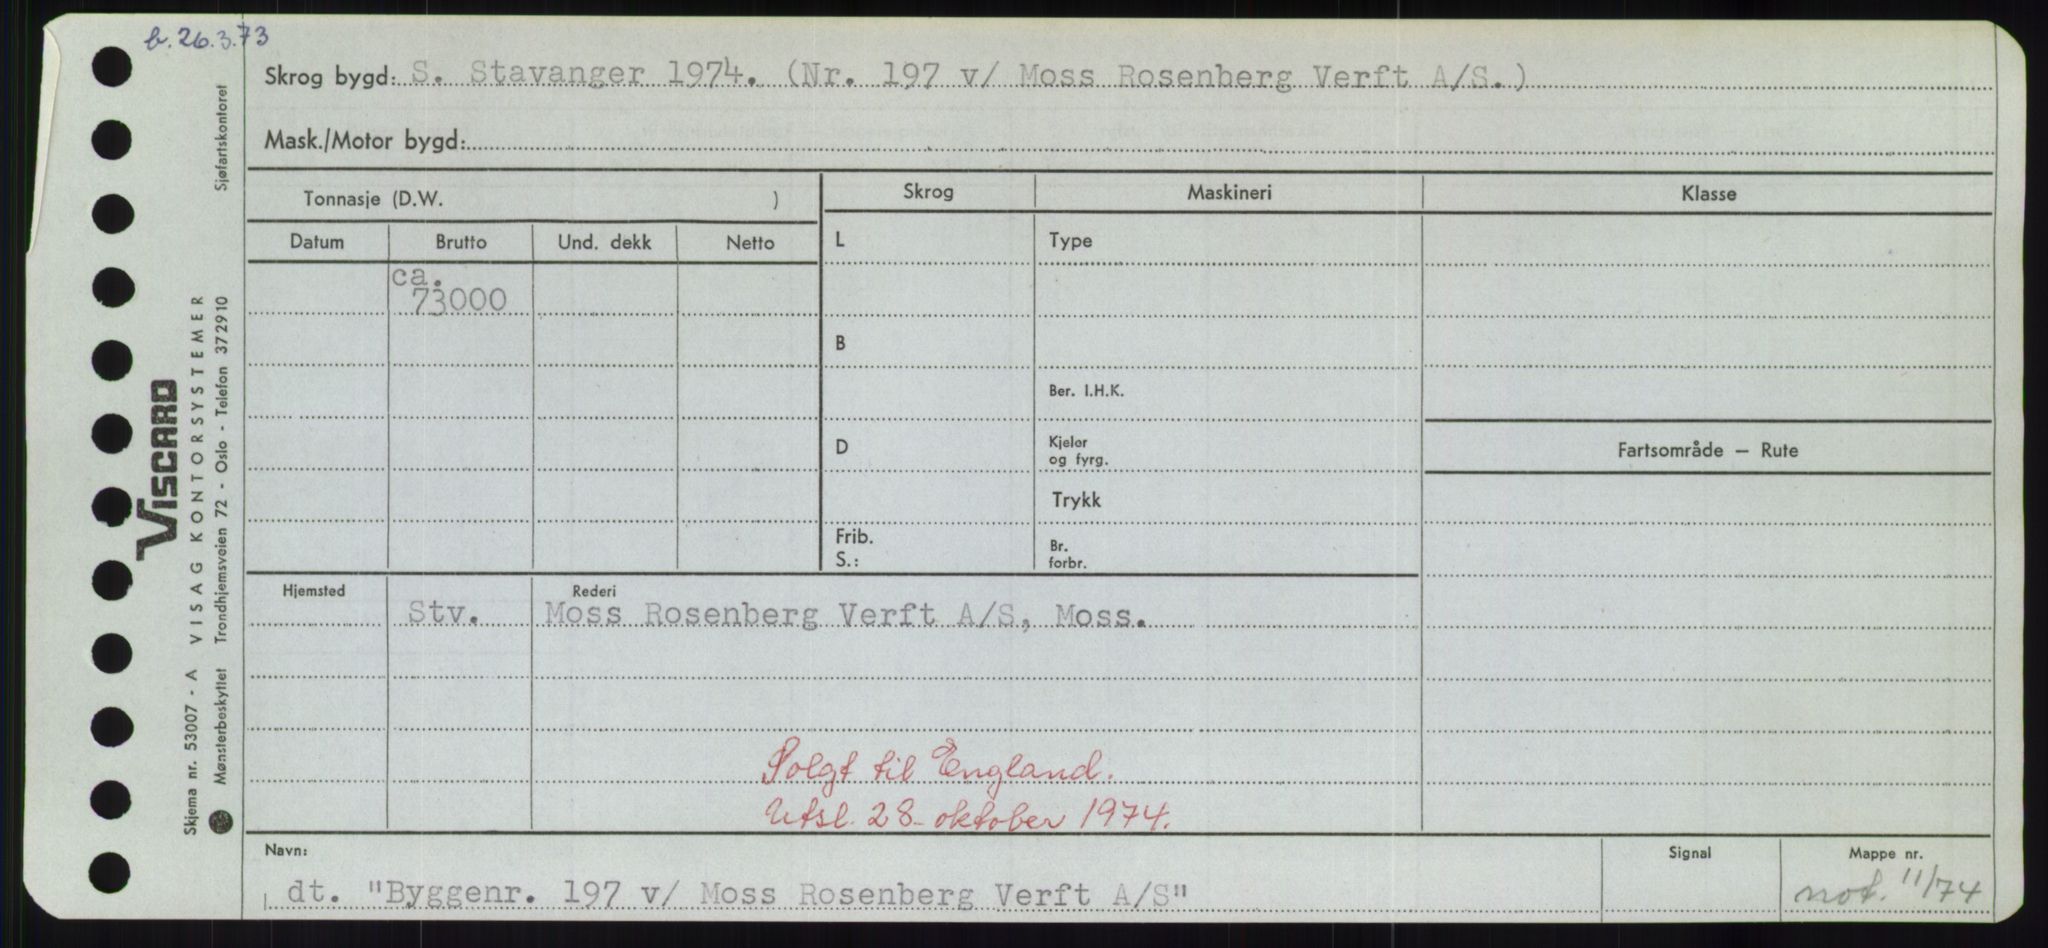 b. 26.3.73
Skrog bygd: S. Stavanger 1974. (Nr. 197 v/ Moss Rosenberg Verft A/S.)
Mask./Motor bygd:
Tonnasje (D.W. )
Skrog
Maskineri
Klasse
Datum
Brutto
Und. dekk
Netto
L
Type
ca.
73000
B
Ber. I.H.K.
D
Kjeler
og fyrg.
Fartsområde – Rute
Trykk
Frib.
S.:
Br.
forbr.
Hjemsted
Rederi
Stv.
Moss Rosenberg Verft A/S, Moss.
Solgt til England.
Utsl. 28. oktober 1974.
Navn:
Signal
Mappe nr.
dt. "Byggenr. 197 v/ Moss Rosenberg Verft A/S"
not. 11/74
VISCARD
Skjema nr. 53007 - A VISAG KONTORSYSTEMER
Mønsterbeskyttet Trondhjemsveien 72 - Oslo - Telefon 372910 Sjøfartskontoret